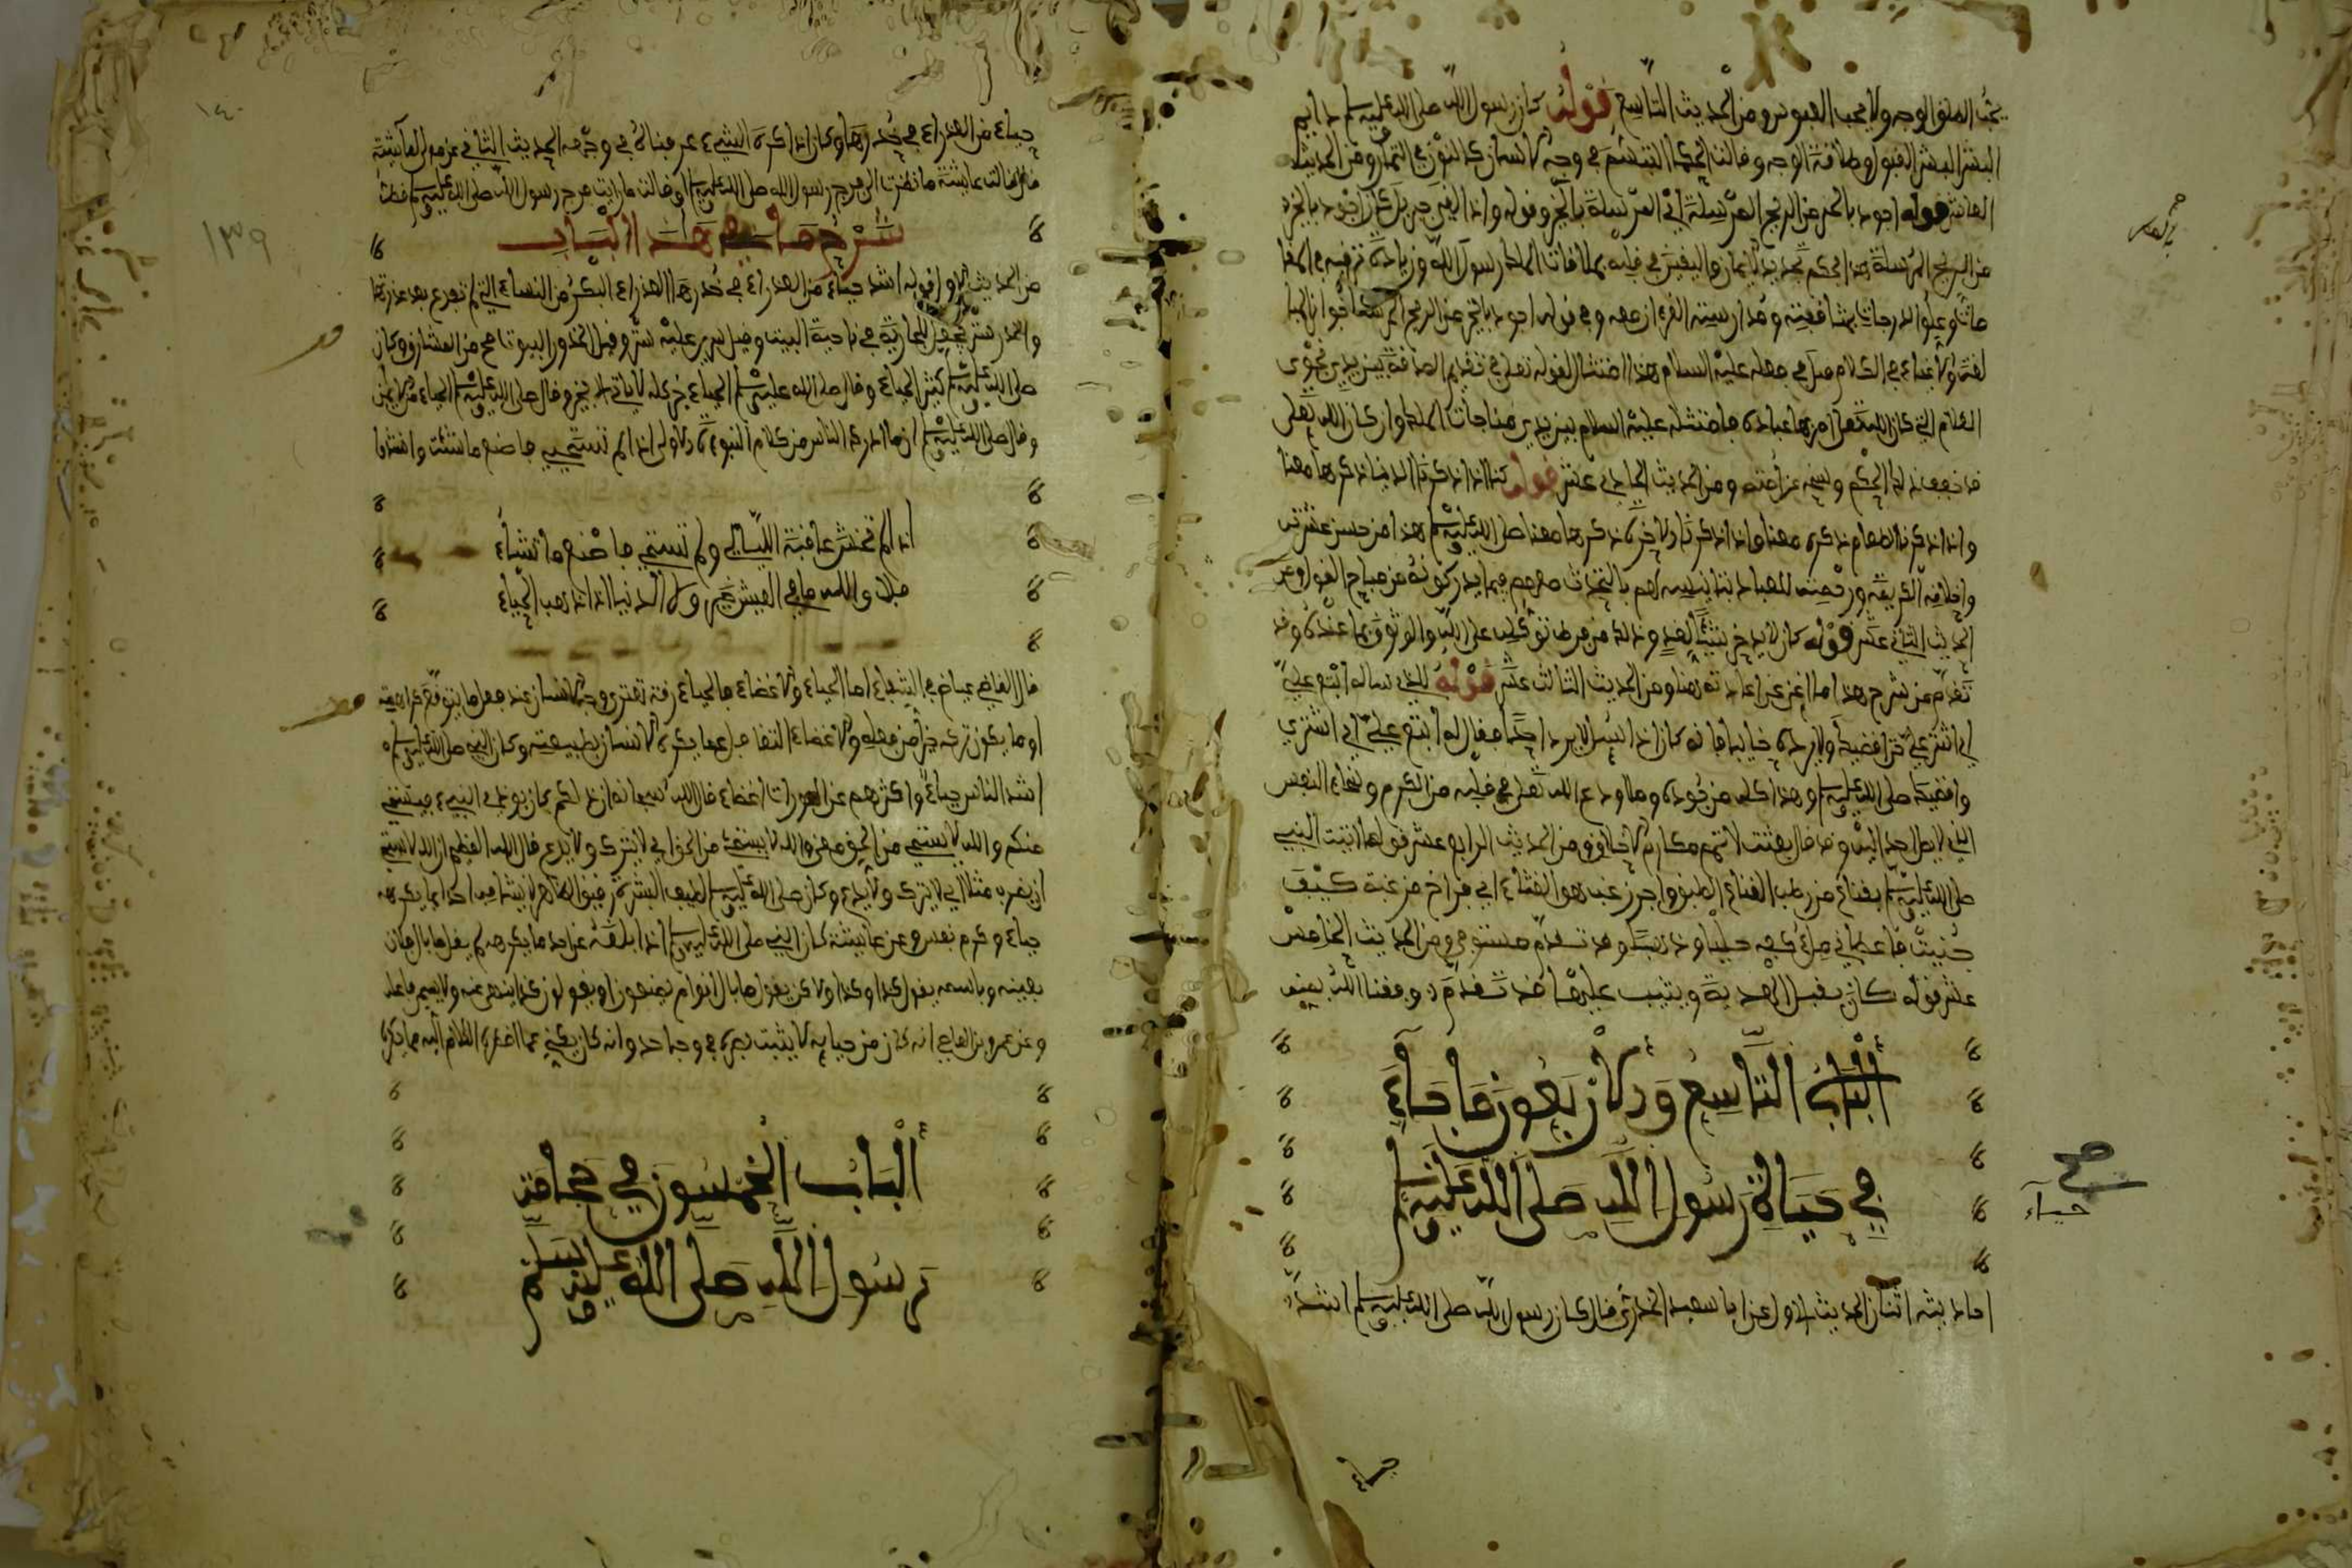 يحب الطلق الوجه ولا يحب العبوس ومن الحديث التاسع قوله كان رسول الله صلى الله عليه وسلم دايم
البشر البشر القبول وطلاقة الوجه وقالت الحكما التبسم في وجه الانسان كالنور في الثمار ومن الحديث
العاشر قوله اجود بالخير من الريح المرسلة اي المرسلة بالخير وقوله واذا لقي جبريل كان اجود بالخير
من الريح المرسلة هذا في حكم تجديد الايمان واليقين في قلبه بملاقات الملك رسول الله وزيادة ترقيه في المقا
مات وعلو الدرجات بمشافهته ومدارسته القرءان معه وفي قوله اجود بالخير من الريح المرسلة
لغة ولاغياء في الكلام فعل في فعله عليه السلام هذا امتثال لقوله تعلى في تقديم الصدقة بين يدي نجوى
الغلام التي كان الله تعلى امر بها عباده فامتثله عليه السلام بين يدي مناجات الملك وان كان الله تعلى
قد خفف ذلك الحكم ونسخه عن امته ومن الحديث الحادي عشر قوله كنا اذا ذكرنا الدنيا ذكرها معنا
واذا ذكرنا الطعام ذكره معنا واذا ذكرنا الاخرة ذكرها معنا صلى الله عليه وسلم هذا من حسن عشرته
واخلاقه الكريمة ورحمته للعباد بتانيسه لهم بالتحدث معهم فيما يذكرونه من مباح القول وعن
الحديث الثاني عشر قوله كان لا يدخر شيئا لغد وذلك من فرط توكله على الله والوثوق بما عنده وقد
تقدم من شرح هذا ما اغنى عن اعادته هنا ومن الحديث الثالث عشر قوله للذي ساله ابتع علي
اي اشتري علي حتى اقضيه ولا يرده خايبا فانه كان اذا سئل لا يرد احدا فقال له ابتع علي اي اشتري
واقضيك صلى الله عليه وسلم وهذا كله من جوده وما اودع الله تعلى في قلبه من الكرم وسخاء النفس
الذي لا يصل احد اليه وقد قال بعثت لاتمم مكارم الاخلاق ومن الحديث الرابع عشر قولها اتيت النبي
صلى الله عليه وسلم بقناع من رطب القناع الطبق واجر زغب هو القثاء اي فراخ مزغبة كيف
جنيت فاعطاني ملء كفه حليا وذهبا وقد تقدم مستوفى ومن الحديث الخامس
عشر قوله كان يقبل الهدية ويثيب عليها قد تقدم وفقنا الله بمنه
ألباب التاسع والاربعون ما جاء
في حياء رسول الله صلى الله عليه وسلم
صح
حياء
احاديثه اثنان الحديث الاول عن ابي سعيد الخدري قال كان رسول الله صلى الله عليه وسلم اشد
حياء
١٤٠
١٣٩
حياء من العذراء في خدرها وكان اذا كره الشيء عرفناه في وجهه الحديث الثاني عن مولى لعائشة
قال قالت عايشة ما نظرت الى فرج رسول الله صلى الله عليه وسلم او قالت ما رايت فرج رسول الله صلى الله عليه وسلم قط
شرح ما في هذا الباب
من الحديث الاول قوله اشد حياء من العذراء في خدرها العذراء البكر من النساء التي لم تفرع بعد عذرتها
والخدر ستر يجعل للجارية في ناحية البيت وقيل سرير عليه ستر وقيل الخدور البيوت
صلى الله عليه وسلم كثير الحياء وقال صلى الله عليه وسلم الحياء خير كله لا ياتي الا بخير وقال صلى الله عليه وسلم الحياء من الايمان
وقال صلى الله عليه وسلم ان مما ادرك الناس من كلام النبوءة الاولى اذا لم تستحيي فاصنع ما شئت وانشدوا
اذا لم تخش عاقبة الليالي ولم تستحي فاصنع ما تشاء
فلا والله ما في العيش خير ولا الدنيا اذا ذهب الحياء
قال القاضي عياض في الشفاء اما الحياء والاغضاء فالحياء رقة تعتري وجه الانسان عند فعل ما يتوقع كراهيته
او ما يكون تركه خيرا من فعله والاغضاء التغافل عما يكره الانسان بطبيعته وكان النبي صلى الله عليه وسلم
اشد الناس حياء واكثرهم عن العورات اغضاء قال الله سبحانه ان ذلكم كان يوذي النبيء فيستحي
منكم والله لا يستحي من الحق والله لا يستحي من الحق اي لا يترك ولا يدع قال الله العظيم ان الله لا يستحي
ان يضرب مثلا اي لا يترك ولا يدع وكان صلى الله عليه وسلم لطيف البشرة رقيق الظاهر لا يشافه احدا بما يكرهه
حياء وكرم نفس وعن عايشة كان النبي صلى الله عليه وسلم اذا بلغه عن احد ما يكرهه لم يقل ما بال فلان
بعينه وباسمه يقول كذا وكذا ولاكن يقول ما بال اقوام يصنعون او يقولون كذا ينهى عنه ولا يسمي فاعله
وعن عمرو بن العاصي انه كان من حيايه لا يثبت بصره في وجه احد وانه كان يكني عما اضطره الكلام اليه مما يكره
ألباب الخمسون في حجامة
رسول الله صلى الله عليه وسلم